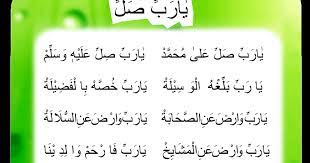 يَارَبِّ صَلِّ
يَارَبِّ صَلِّ عَلىٰ مُحَمَّدْ يَارَبِّ صَلِّ عَلَيْهِ وَسَلِّمْ
يَا رَبِّ بَلِّغْهُ الْوَ سِيْلَةْ يَارَبِّ خُصَّهْ بِا لْفَضِيْلَةْ
يَارَبِّ وَارْضَ عَنِ الصَّحَابَةْ يَارَبِّ وَارْضَ عَنِ السُّلَالَةْ
يَارَبِّ وَارْضَ عَنِ الْمَشَايِخْ يَارَبِّ فَا رْحَمْ وَا لِدِ يْنَا